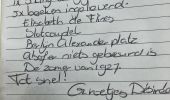 3x boeken ingeleverd:
Elisabeth de Flines
Slotcouplet
Berlijn Alexanderplatz
Alsof er niets gebeurd is
De zomer van 1927
Tot snel!
Groetjes Désirée